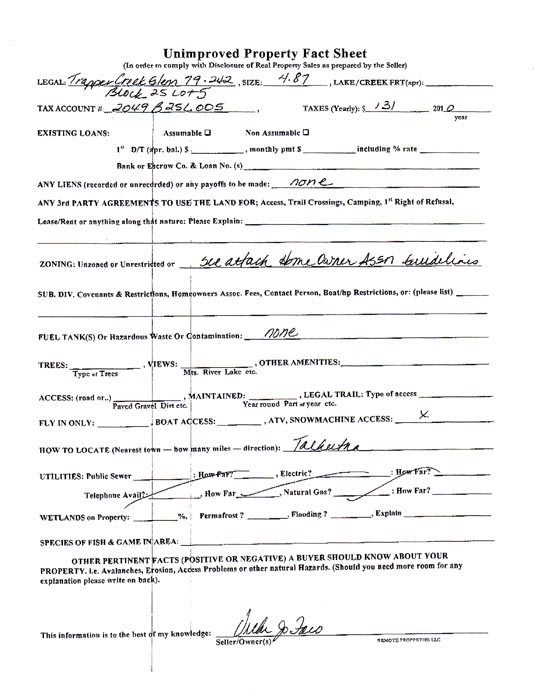 Unimproved Property Fact Sheet
(In order to comply with Disclosure of Real Property Sales as prepared by the Seller)
LEGAL: Trapper Creek Glen 79-242, SIZE: 4.87, LAKE/CREEK FRT(apr):
Block 25 Lot 5
TAX ACCOUNT # 2049B25L005, TAXES (Yearly): $ 131 2010
year
EXISTING LOANS: Assumable ☐ Non Assumable ☐
1st D/T (apr. bal.) $, monthly pmt $ including % rate
Bank or Escrow Co. & Loan No. (s)
ANY LIENS (recorded or unrecorded) or any payoffs to be made: none
ANY 3rd PARTY AGREEMENTS TO USE THE LAND FOR; Access, Trail Crossings, Camping, 1st Right of Refusal,
Lease/Rent or anything along that nature: Please Explain:
ZONING: Unzoned or Unrestricted or see attach Home Owner Assn Guidelines
SUB. DIV. Covenants & Restrictions, Homeowners Assoc. Fees, Contact Person, Boat/hp Restrictions, or: (please list)
FUEL TANK(S) Or Hazardous Waste Or Contamination: none
TREES:, VIEWS:, OTHER AMENITIES:
Type of Trees Mts. River Lake etc.
ACCESS: (road or..), MAINTAINED:, LEGAL TRAIL: Type of access
Paved Gravel Dirt etc. Year round Part of year etc.
FLY IN ONLY:; BOAT ACCESS:, ATV, SNOWMACHINE ACCESS: X
HOW TO LOCATE (Nearest town — how many miles — direction): Talkeetna
UTILITIES: Public Sewer: How Far?, Electric?: How Far?
Telephone Avail?:, How Far, Natural Gas?: How Far?
WETLANDS on Property: %, Permafrost ?, Flooding ?, Explain
SPECIES OF FISH & GAME IN AREA:
OTHER PERTINENT FACTS (POSITIVE OR NEGATIVE) A BUYER SHOULD KNOW ABOUT YOUR
PROPERTY. i.e. Avalanches, Erosion, Access Problems or other natural Hazards. (Should you need more room for any
explanation please write on back).
This information is to the best of my knowledge:
Seller/Owner(s)
REMOTE PROPERTIES LLC